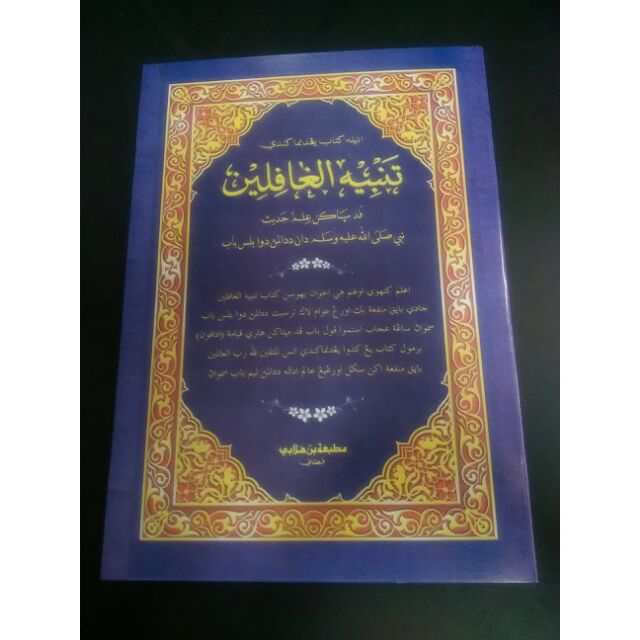 انيله كتاب يڠدنماكندي
تَنْبِيْه الْغَافِلِيْن
ڤد مڽتاكن عِلمُ حديث
نبي صَلَى الله عليه وسَلم دان ددالمن دوا بلس باب
اعلم كتهوي اولهم هي اخوان بهوسن كتاب تنبيه الغافلين
جادي بايق منفعة بݢ اورڠ عوام لاݢ ترسبت ددالمن دوا بلس باب
سموان ساڠة عجاب استموا قول باب ڤد مڽتاكن هاري قيامة
برمول كتاب يڠ كدوا يڠدنماكندي انس المتقين لله رب العالمين
بايق منفعة اكن سݢل اورڠيڠ عالم اداله ددالمن ليم باب سموان
مطبعة بن هلابي
فطاني